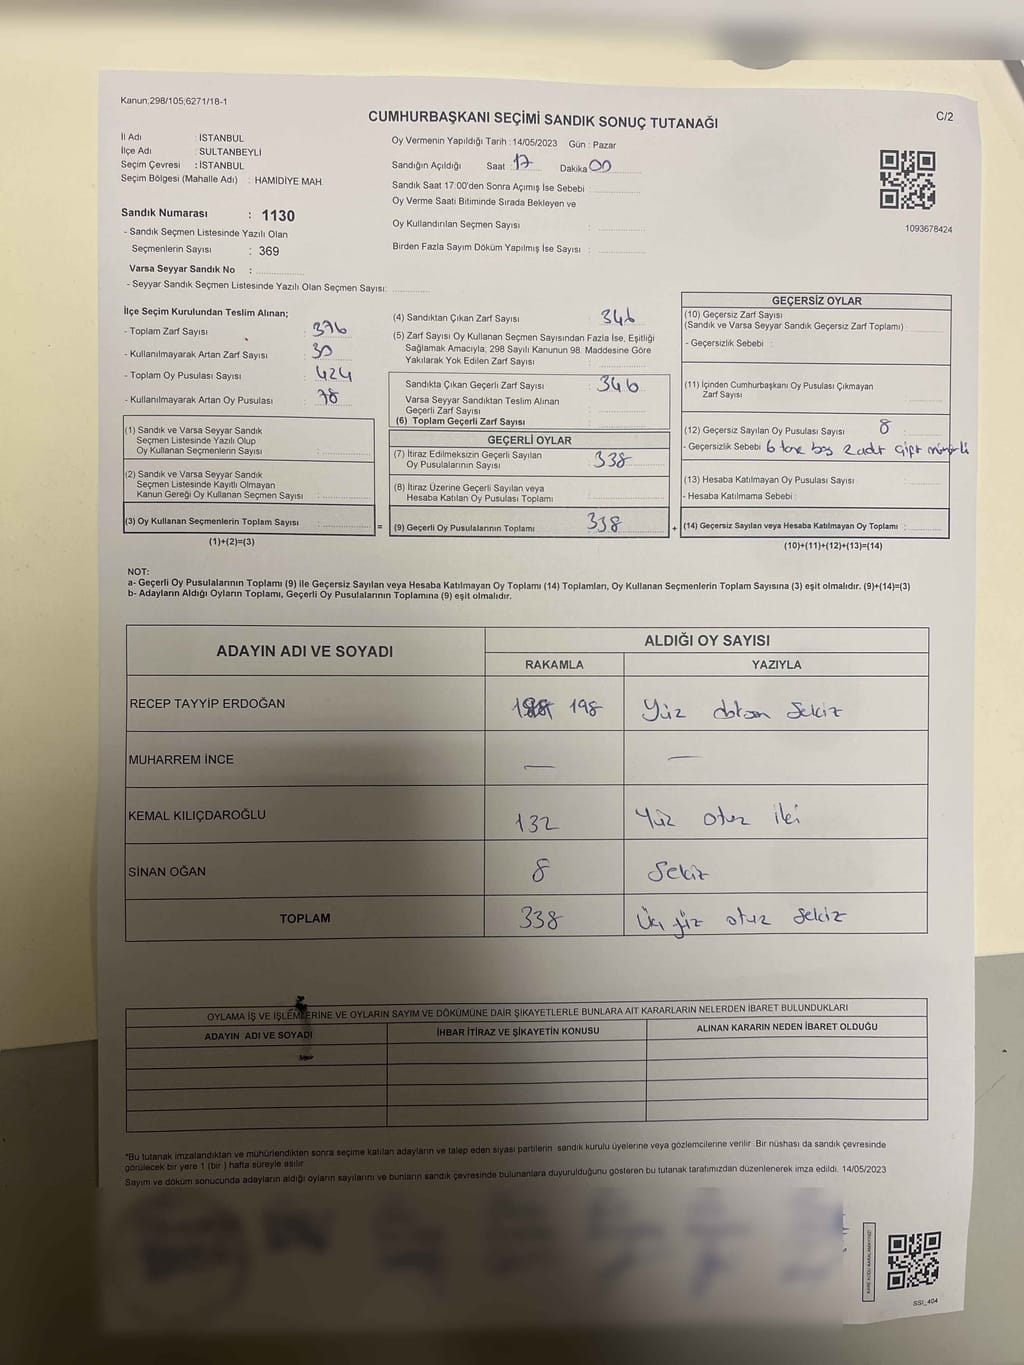 Kanun;298/105;6271/18-1
CUMHURBAŞKANI SEÇİMİ SANDIK SONUÇ TUTANAĞI
C/2
İl Adı : İSTANBUL
İlçe Adı : SULTANBEYLİ
Seçim Çevresi : İSTANBUL
Seçim Bölgesi (Mahalle Adı) : HAMİDİYE MAH.
Sandık Numarası : 1130
- Sandık Seçmen Listesinde Yazılı Olan
Seçmenlerin Sayısı : 369
Varsa Seyyar Sandık No :
- Seyyar Sandık Seçmen Listesinde Yazılı Olan Seçmen Sayısı:
Oy Vermenin Yapıldığı Tarih : 14/05/2023 Gün : Pazar
Sandığın Açıldığı Saat : 17 Dakika 00
Sandık Saat 17:00'den Sonra Açımış İse Sebebi :
Oy Verme Saati Bitiminde Sırada Bekleyen ve
Oy Kullandırılan Seçmen Sayısı :
Birden Fazla Sayım Döküm Yapılmış İse Sayısı :
1093678424
İlçe Seçim Kurulundan Teslim Alınan;
- Toplam Zarf Sayısı : 376
- Kullanılmayarak Artan Zarf Sayısı : 30
- Toplam Oy Pusulası Sayısı : 424
- Kullanılmayarak Artan Oy Pusulası : 78
(1) Sandık ve Varsa Seyyar Sandık
Seçmen Listesinde Yazılı Olup
Oy Kullanan Seçmenlerin Sayısı :
(2) Sandık ve Varsa Seyyar Sandık
Seçmen Listesinde Kayıtlı Olmayan
Kanun Gereği Oy Kullanan Seçmen Sayısı :
(3) Oy Kullanan Seçmenlerin Toplam Sayısı :
(1)+(2)=(3)
(4) Sandıktan Çıkan Zarf Sayısı : 346
(5) Zarf Sayısı Oy Kullanan Seçmen Sayısından Fazla İse, Eşitliği
Sağlamak Amacıyla; 298 Sayılı Kanunun 98. Maddesine Göre
Yakılarak Yok Edilen Zarf Sayısı :
Sandıkta Çıkan Geçerli Zarf Sayısı : 346
Varsa Seyyar Sandıktan Teslim Alınan
Geçerli Zarf Sayısı :
(6) Toplam Geçerli Zarf Sayısı :
GEÇERLİ OYLAR
(7) İtiraz Edilmeksizin Geçerli Sayılan
Oy Pusulalarının Sayısı : 338
(8) İtiraz Üzerine Geçerli Sayılan veya
Hesaba Katılan Oy Pusulası Toplamı :
= (9) Geçerli Oy Pusulalarının Toplamı : 338
GEÇERSİZ OYLAR
(10) Geçersiz Zarf Sayısı
(Sandık ve Varsa Seyyar Sandık Geçersiz Zarf Toplamı) :
- Geçersizlik Sebebi :
(11) İçinden Cumhurbaşkanı Oy Pusulası Çıkmayan
Zarf Sayısı :
(12) Geçersiz Sayılan Oy Pusulası Sayısı : 8
- Geçersizlik Sebebi 6 tane boş 2 adt çift mühürlü
(13) Hesaba Katılmayan Oy Pusulası Sayısı :
- Hesaba Katılmama Sebebi :
+ (14) Geçersiz Sayılan veya Hesaba Katılmayan Oy Toplamı :
(10)+(11)+(12)+(13)=(14)
NOT:
a- Geçerli Oy Pusulalarının Toplamı (9) ile Geçersiz Sayılan veya Hesaba Katılmayan Oy Toplamı (14) Toplamları, Oy Kullanan Seçmenlerin Toplam Sayısına (3) eşit olmalıdır. (9)+(14)=(3)
b- Adayların Aldığı Oyların Toplamı, Geçerli Oy Pusulalarının Toplamına (9) eşit olmalıdır.
ADAYIN ADI VE SOYADI
ALDIĞI OY SAYISI
RAKAMLA YAZIYLA
RECEP TAYYİP ERDOĞAN 198 Yüz doksan sekiz
MUHARREM İNCE — —
KEMAL KILIÇDAROĞLU 132 Yüz otuz iki
SİNAN OĞAN 8 Sekiz
TOPLAM 338 Üç yüz otuz sekiz
OYLAMA İŞ VE İŞLEMLERİNE VE OYLARIN SAYIM VE DÖKÜMÜNE DAİR ŞİKAYETLERLE BUNLARA AİT KARARLARIN NELERDEN İBARET BULUNDUKLARI
ADAYIN ADI VE SOYADI İHBAR İTİRAZ VE ŞİKAYETİN KONUSU ALINAN KARARIN NEDEN İBARET OLDUĞU
*Bu tutanak imzalandıktan ve mühürlendikten sonra seçime katılan adayların ve talep eden siyasi partilerin sandık kurulu üyelerine veya gözlemcilerine verilir. Bir nüshası da sandık çevresinde
görülecek bir yere 1 (bir ) hafta süreyle asılır.
Sayım ve döküm sonucunda adayların aldığı oyların sayılarını ve bunların sandık çevresinde bulunanlara duyurulduğunu gösteren bu tutanak tarafımızdan düzenlenerek imza edildi. 14/05/2023
SSI_404